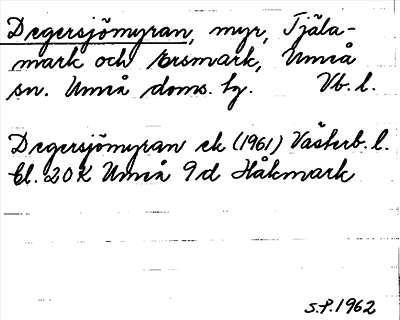 Degersjömyran, myr, Tjäla-
mark och Ersmark, Umeå
sn. Umeå doms. hg. Vb. l.
Degersjömyran ek (1961) Västerb. l.
bl. 20K Umeå 9d Håkmark
S.P. 1962